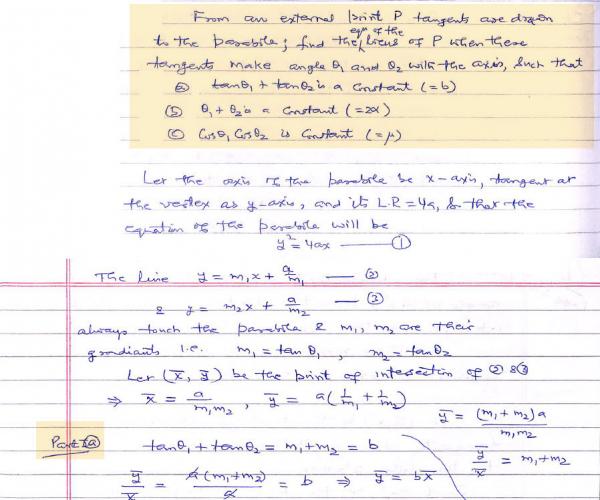 From an external point P tangents are drawn
to the parabola; find the eqn of the locus of P when these
tangents make angle θ1 and θ2 with the axis, such that
(a) tanθ1 + tanθ2 is a constant (= b)
(b) θ1 + θ2 is a constant (= 2α)
(c) Cosθ1 Cosθ2 is constant (= μ)
Let the axis of the parabola be x-axis, tangent at
the vertex as y-axis, and its L.R = 4a, so that the
equation of the parabola will be
y² = 4ax — ①
The line y = m1x + a/m1 — ②
& y = m2x + a/m2 — ③
always touch the parabola & m1, m2 are their
gradiants i.e. m1 = tan θ1, m2 = tan θ2
Let (x̄, ȳ) be the point of intersection of ② & ③
⇒ x̄ = a/m1m2, ȳ = a(1/m1 + 1/m2)
ȳ = (m1 + m2)a/m1m2
Part (a) tanθ1 + tanθ2 = m1 + m2 = b
ȳ/x̄ = m1 + m2
ȳ/x̄ = a(m1 + m2)/a = b ⇒ ȳ = bx̄